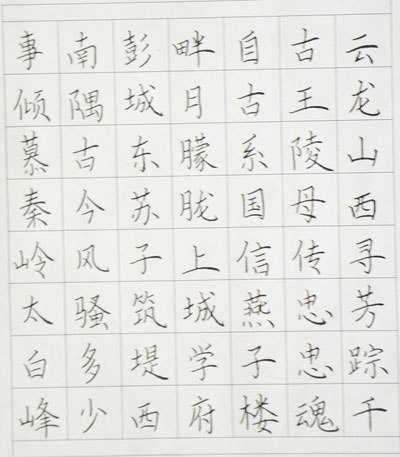 云龙山西寻芳踪千
古王陵母传忠忠魂
自古系国信燕子楼
畔月朦胧上城学府
彭城东苏子筑堤西
南隅古今风骚多少
事倾慕秦岭太白峰